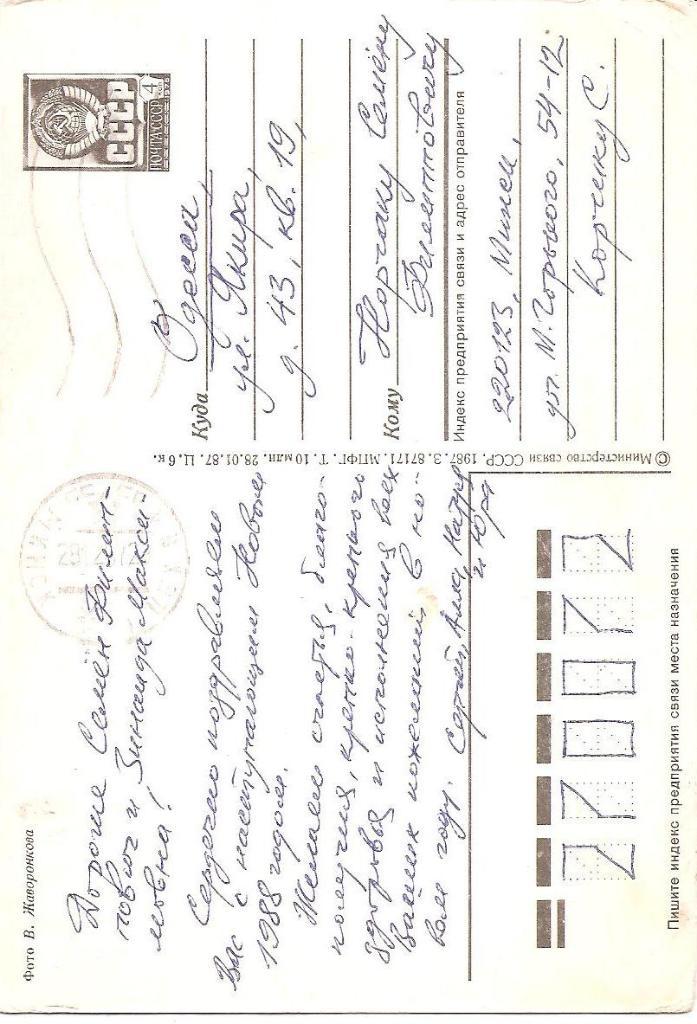 Фото В. Жаворонкова
Дорогие Семён Филип-
пович и Зинаида Макси-
мовна!
Сердечно поздравляем
Вас с наступающим Новым
1988 годом.
Желаем счастья, благо-
получия, крепко-крепкого
здоровья и исполнения всех
Ваших пожеланий в но-
вом году. Сергей, Алла, Катя
и Юра
© Министерство связи СССР, 1987. З. 87171. МПФГ. Т. 10 млн. 28.01.87. Ц. 6 к.
4
ПОЧТА СССР
СССР
Куда Одесса,
ул. Якира,
д. 43, кв. 19,
Кому Семёну
Филипповичу
Индекс предприятия связи и адрес отправителя
220123, Минск,
ул. М. Горького, 54-12
Корченку С.
270072
Пишите индекс предприятия связи места назначения